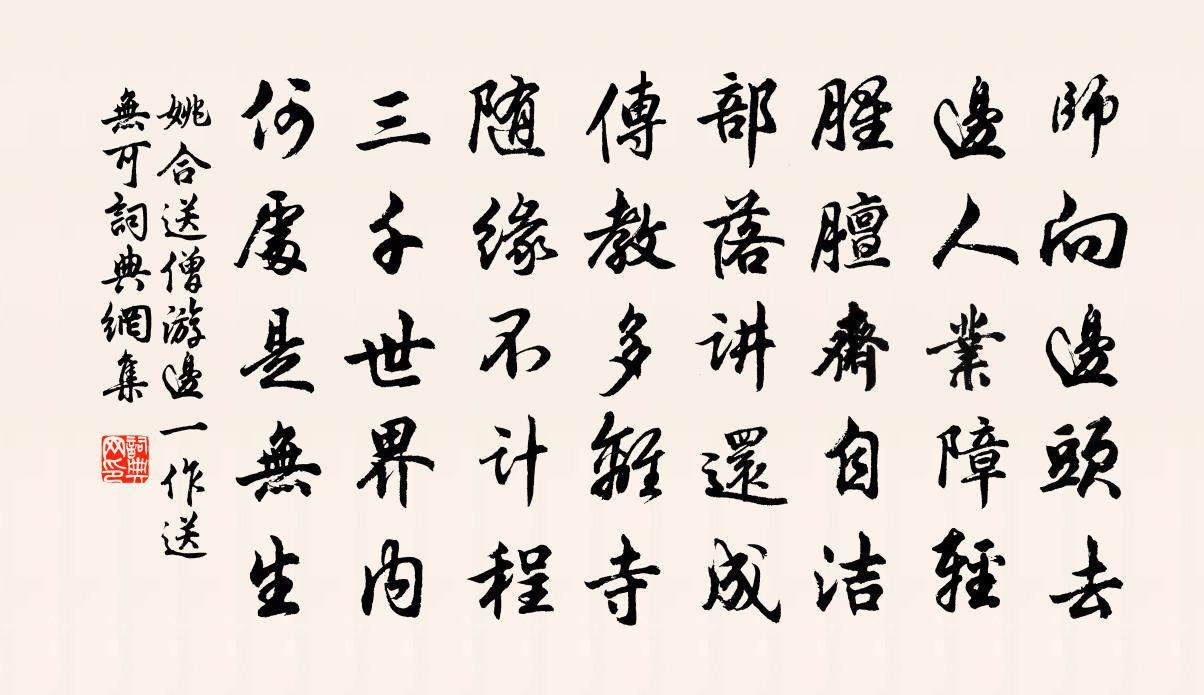 師向邊頭去
邊人業障輕
腥膻齋自洁
部落讲還成
傳教多離寺
随緣不计程
三千世界内
何處是無生
姚合送僧游邊一作送
無可詞典網集
詞典网印